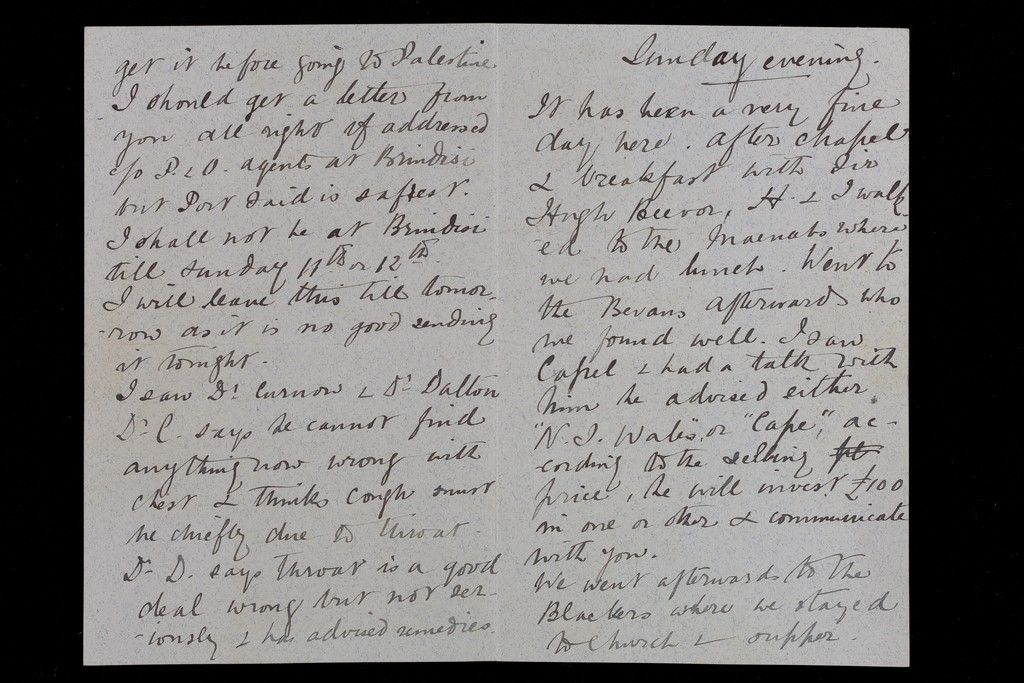 get it before going to Palestine
I should get a letter from
you all right if addressed
c/o P. & O. agents at Brindisi
but Port Said is safest.
I shall not be at Brindisi
till Sunday 11th or 12th.
I will leave this till tomor-
-row as it is no good sending
it tonight.
I saw Dr. Curnow & Dr. Dalton
Dr. C. says he cannot find
anything now wrong with
chest & thinks cough must
be chiefly due to throat.
Dr. D. says throat is a good
deal wrong but not ser-
-iously & has advised remedies.
Sunday evening.
It has been a very fine
day here. After chapel
& breakfast with Sir
Hugh Beevor, H. & I walk
-ed to the Macnabs where
we had lunch. Went to
the Bevans afterwards who
we found well. I saw
Capel & had a talk with
him he advised either
"N. S. Wales," or "Cape," ac-
cording to the selling
price, he will invest £100
in one or other & communicate
with you.
We went afterwards to the
Blackers where we stayed
to Church & supper.